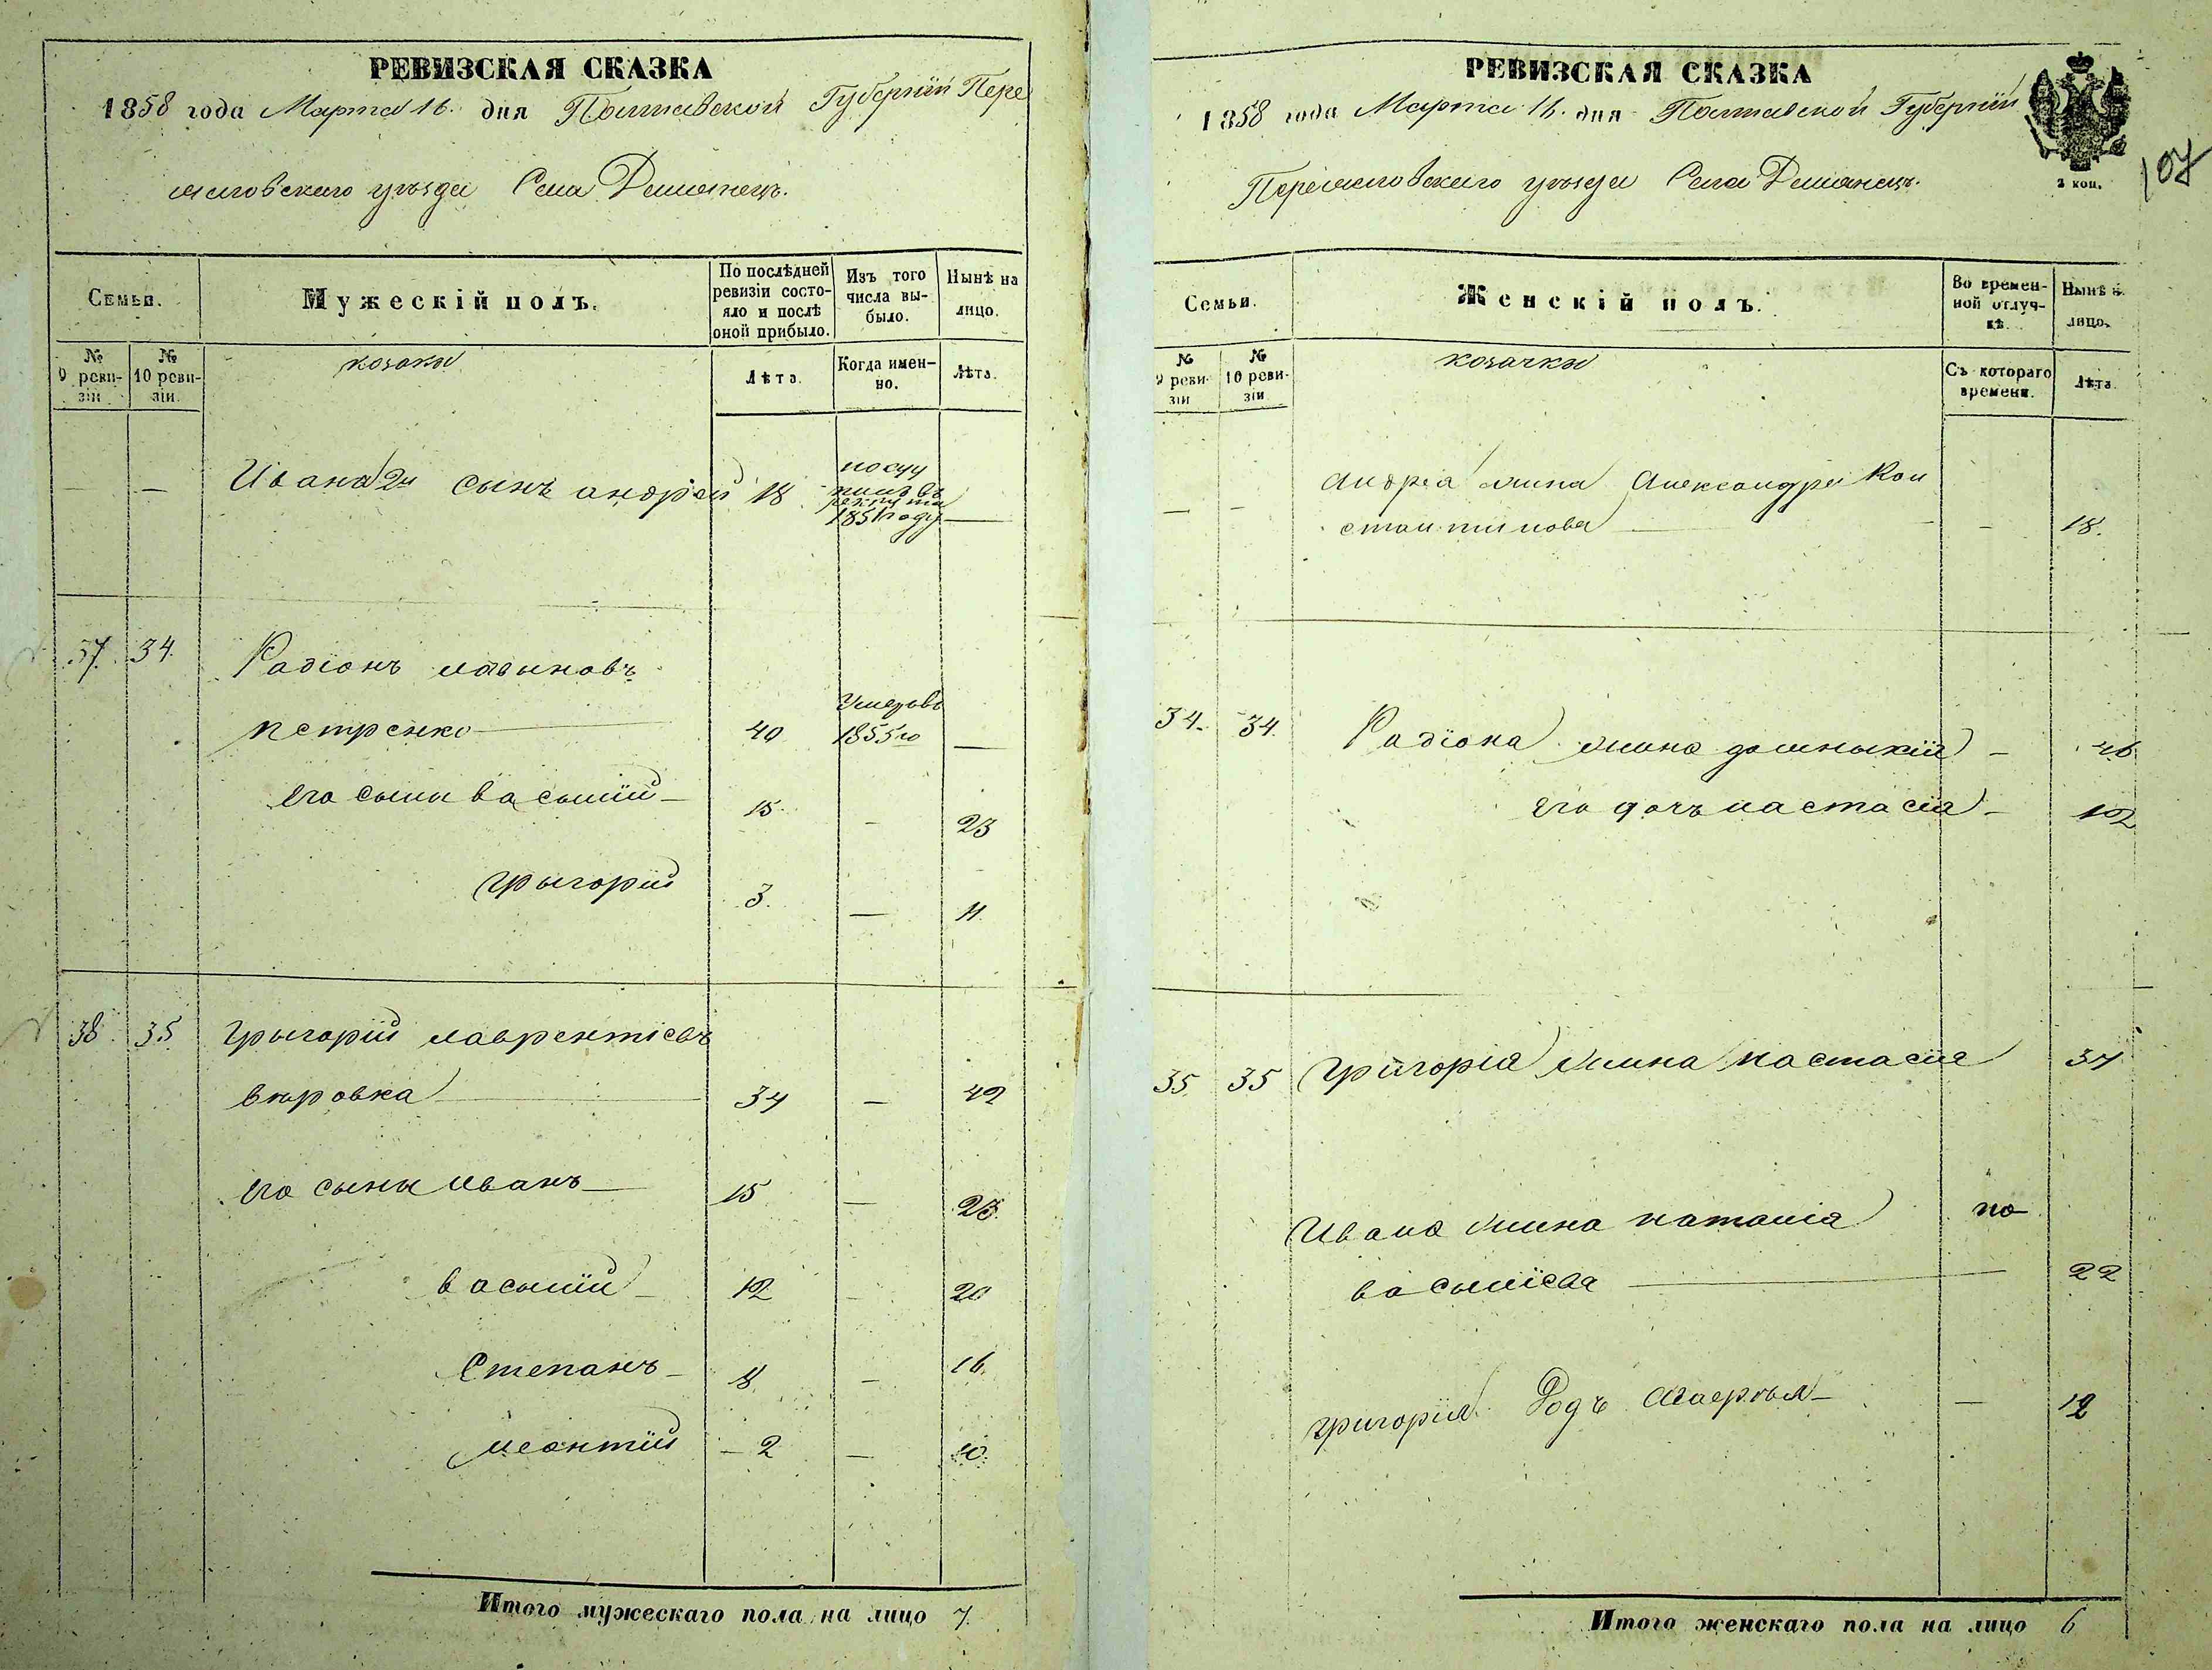 РЕВИЗСКАЯ СКАЗКА
1858 года Марта 16. дня Полтавской Губерніи Пере
яславскаго уѣзда Села Демянецъ.
Семьи.
Мужескій полъ.
По послѣдней ревизіи состояло и послѣ оной прибыло.
Изъ того числа выбыло.
Нынѣ на лицо.
№ 9 ревизіи
№ 10 ревизіи.
козаки
Лѣта.
Когда именно.
Лѣта.
— — Ивана 2й сынъ андрей 18 посту
пилъ въ
рекруты
1851 году —
37. 34. Радіонъ
петренко 40 Умеръ въ
1855 го —
его сыны василій 15 — 23
грыгорій 3. — 11.
38. 35. Грыгорій лаврентіевъ
34 — 42
его сыны иванъ 15 — 23.
василій 12 — 20
Степанъ 8 — 16.
леонтій 2 — 10.
Итого мужескаго пола на лицо 7.
РЕВИЗСКАЯ СКАЗКА
1858 года Марта 16. дня Полтавской Губерніи
Переяславскаго уѣзда Села Демянецъ.
2 коп.
107
Семьи.
Женскій полъ.
Во временной отлучкѣ.
Нынѣ н. лицо.
№ 9 ревизіи
№ 10 ревизіи
козачки
Съ котораго времени.
Лѣта.
— — андріа жина Александра Кон
стантинова — 18.
34. 34. Радіона жина домныкія — 46
его дочъ настасіа — 12
35. 35 Григоріа жина настасіа 37
Ивана жина наталіа но
василіева 22
григорія — 12
Итого женскаго пола на лицо 6